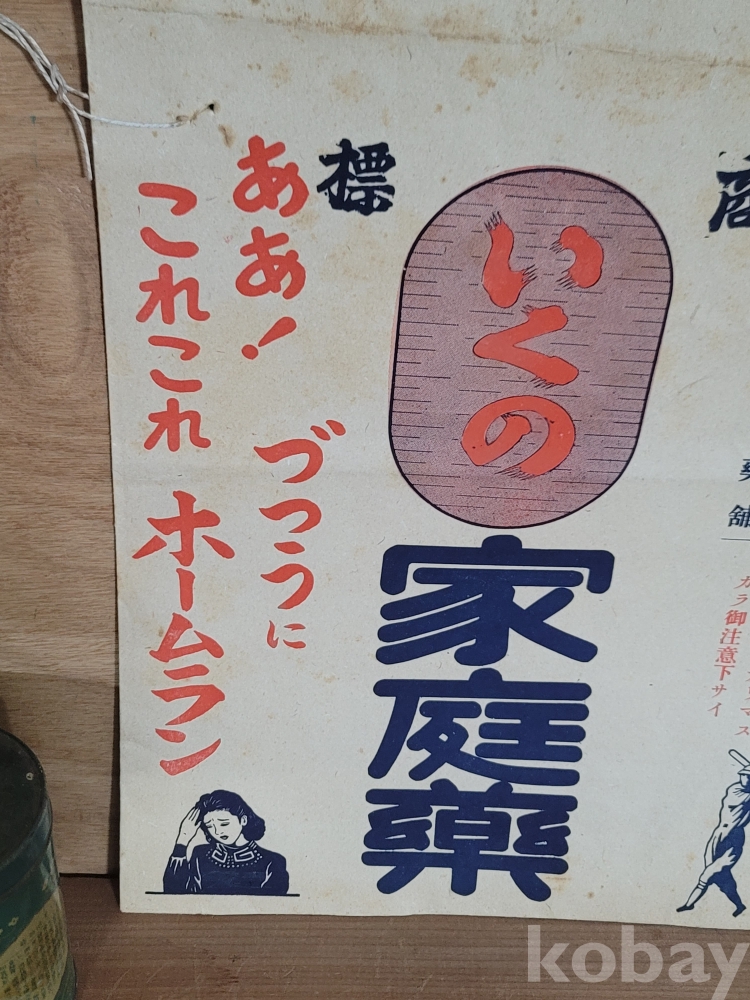 商
標
いくの
家庭藥
ああ！づつうに
これこれホームラン
藥
舖
御注意下サイ
kobay